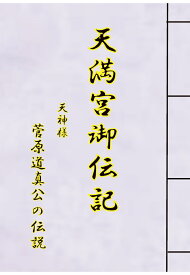 天満宮御伝記
天神様
菅原道真公の伝説